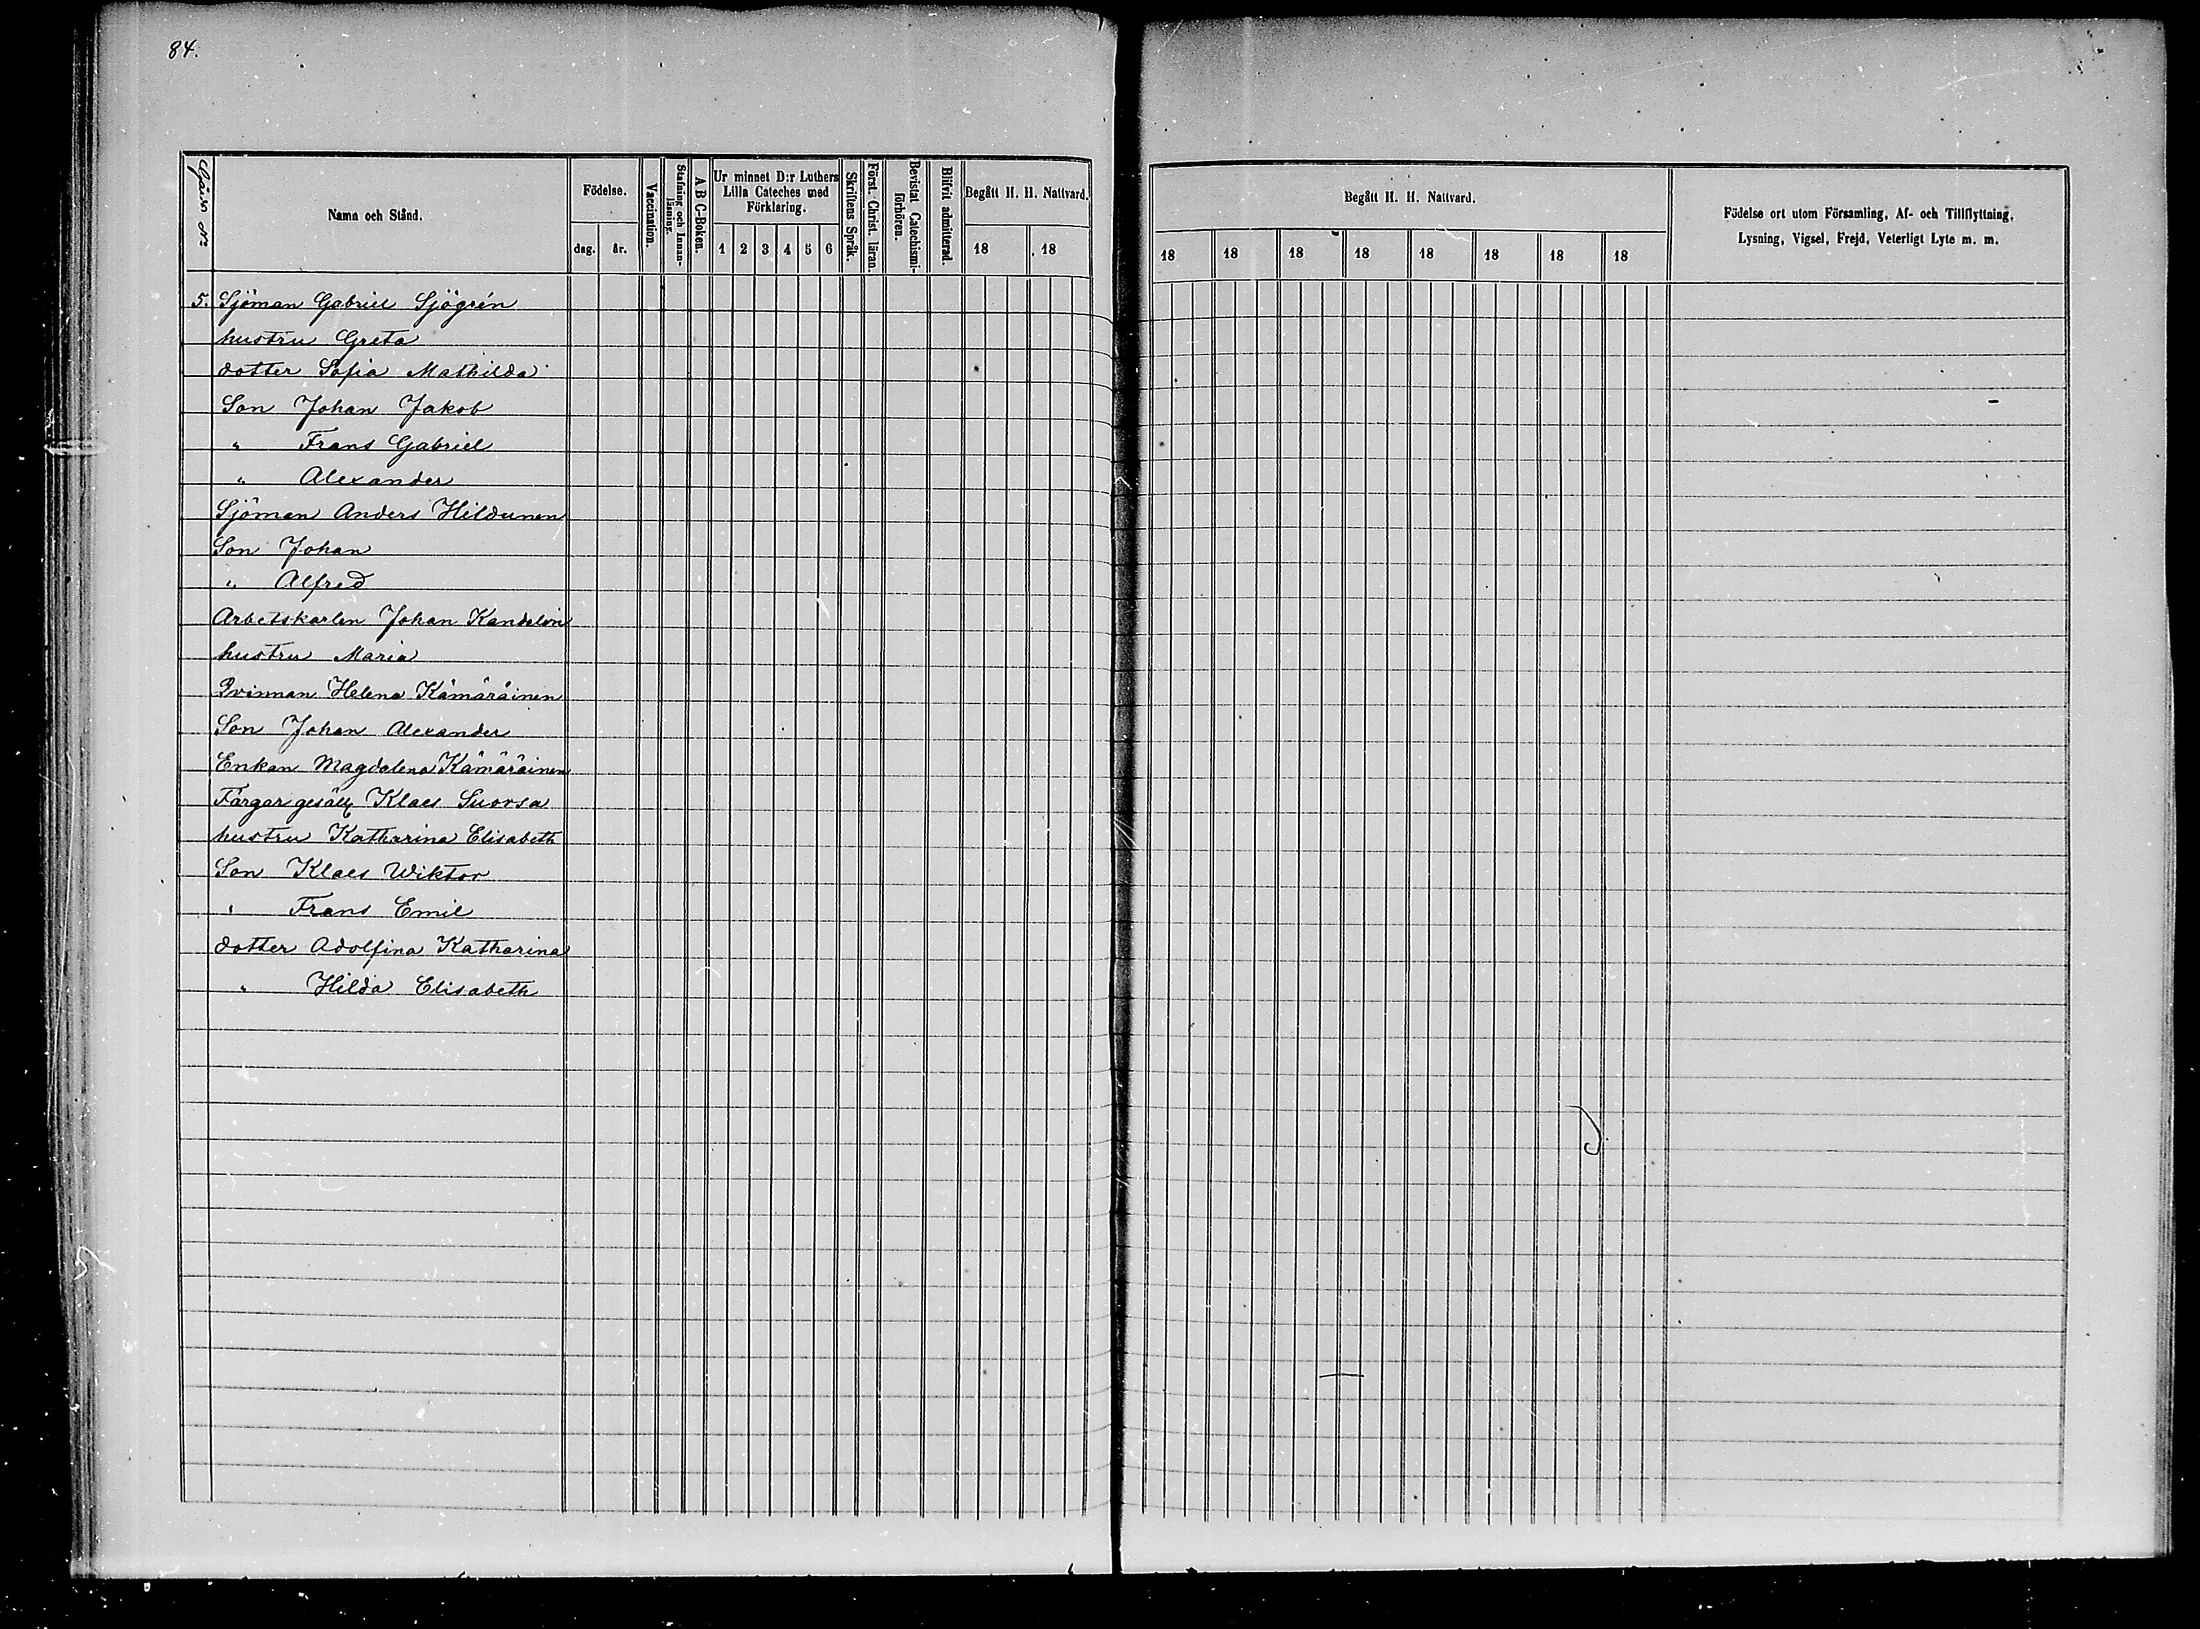 84.
Gårds No
Namn och Stånd.
Födelse.
dag.
år.
Vaccination.
Stafning och Innan-
läsning.
A B C-Boken.
Ur minnet D:r Luthers
Lilla Cateches med
Förklaring.
1 2 3 4 5 6
Skriftens Språk.
Först. Christ. läran.
Bevistat Catechismi-
förhören.
Blifvit admitterad.
Begått H. H. Nattvard.
18 18
Begått H. H. Nattvard.
18 18 18 18 18 18 18 18
Födelse ort utom Församling, Af- och Tillflyttning,
Lysning, Vigsel, Frejd, Veterligt Lyte m. m.
5. Sjöman Gabriel Sjögrén
hustru Greta
dotter Sofia Mathilda
Son Johan Jakob
" Frans Gabriel
" Alexander
Sjöman Anders Hildunen
Son Johan
" Alfred
Arbetskarlen Johan Kandelin
hustru Maria
Qvinnan Helena Kämäräinen
Son Johan Alexander
Enkan Magdalena Kämäräinen
Färgar gesäll Klaes Suorsa
hustru Katharina Elisabeth
Son Klaes Wiktor
" Frans Emil
dotter Adolfina Katharina
" Hilda Elisabeth